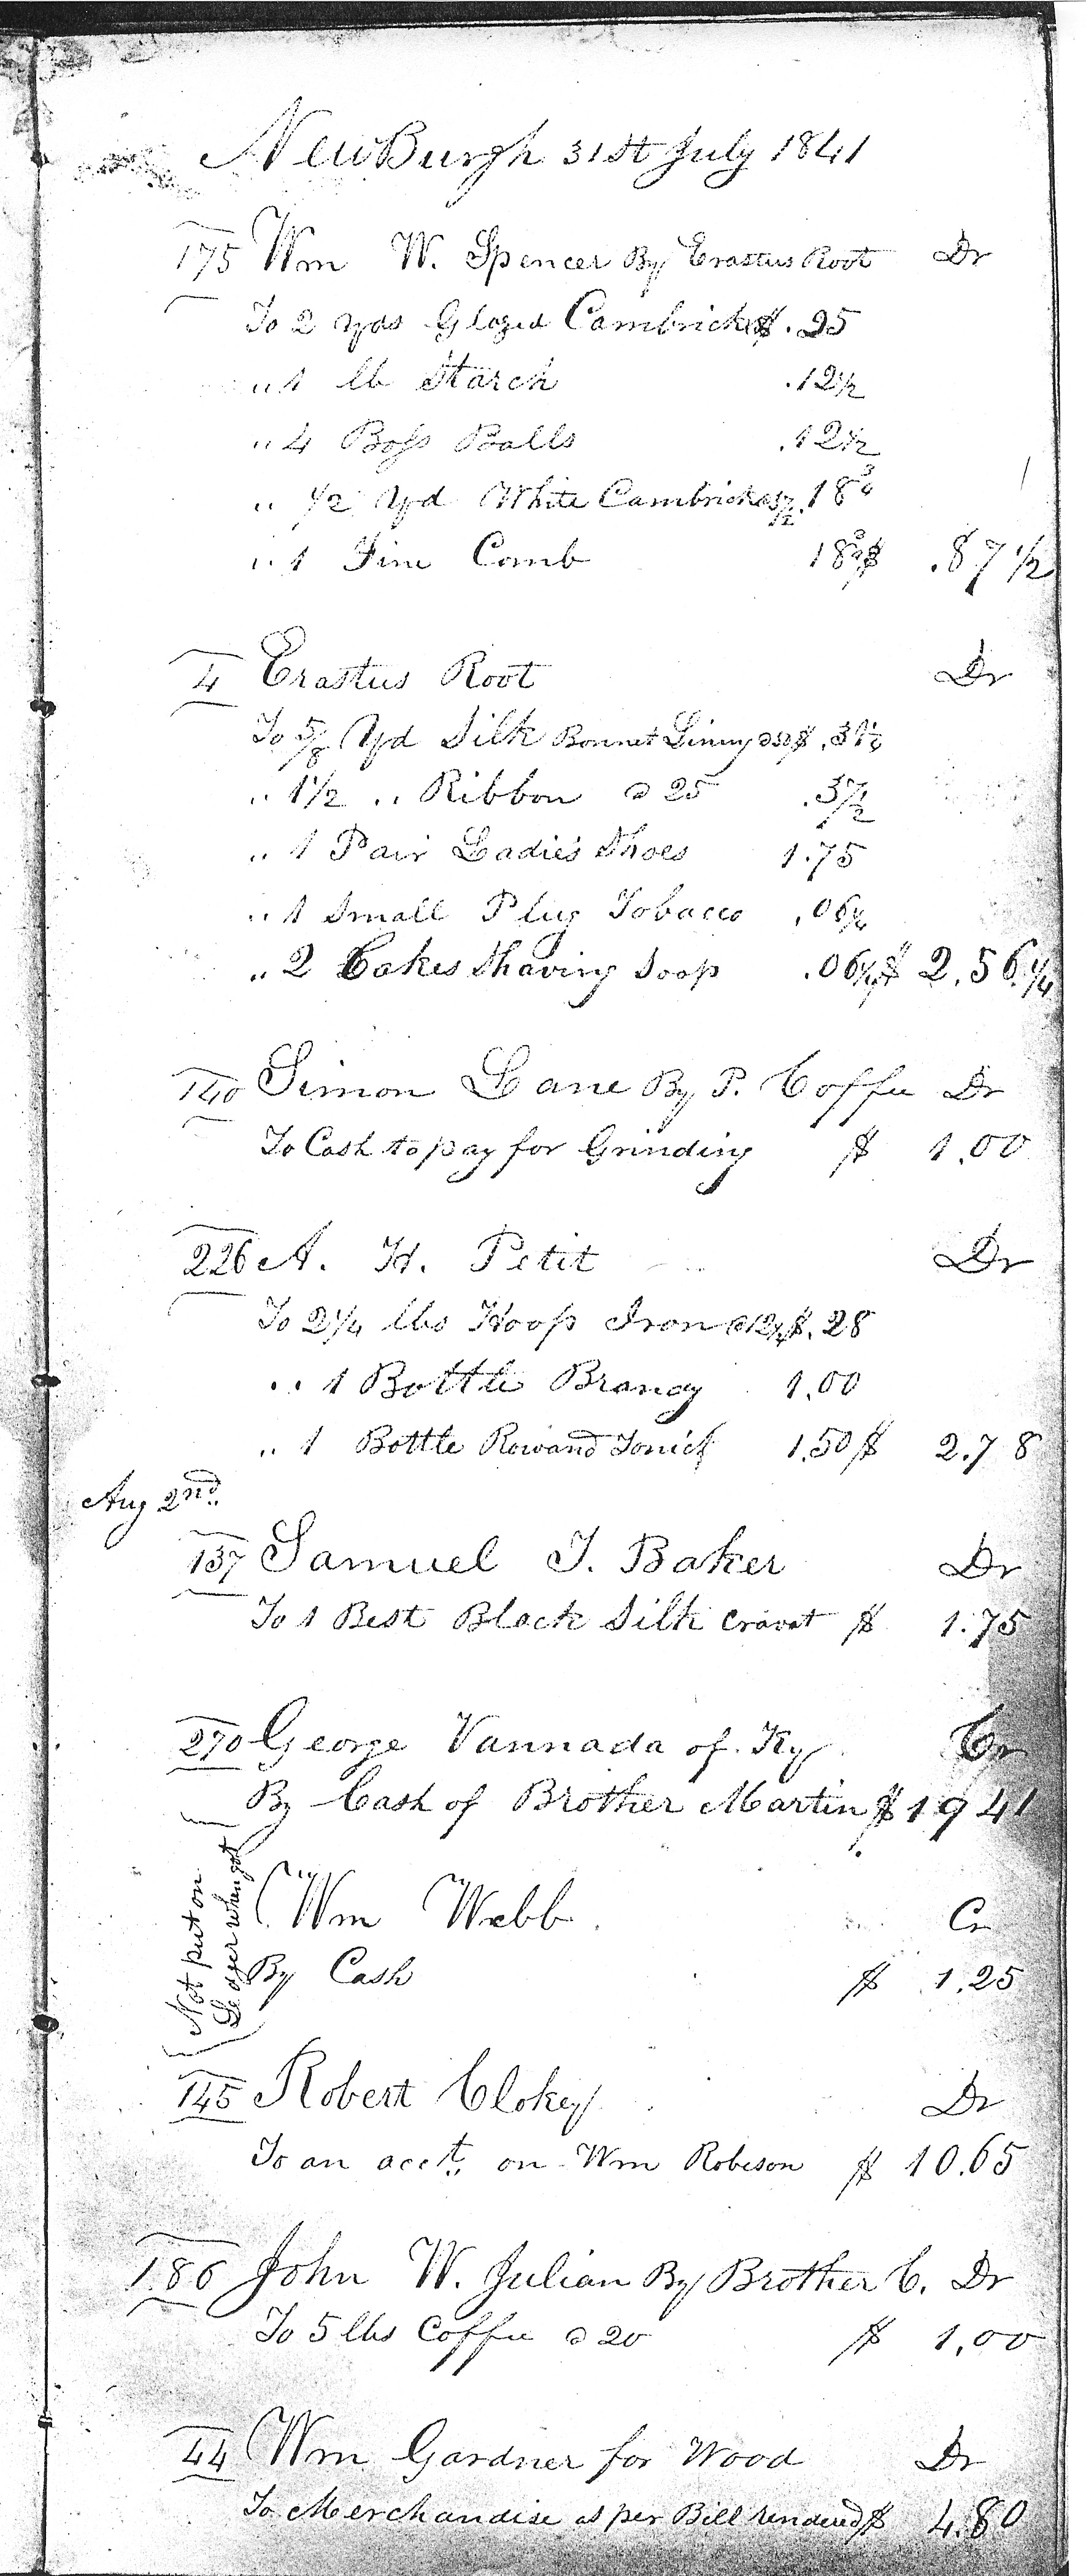 NewBurgh 31st July 1841
175 Wm W. Spencer By Erastus Root Dr
To 2 yds Glazed Cambricks $ .25
" 1 lb Starch .12½
" 4 Boss Balls .12½
" ½ Yd White Cambrick .18¾
" 1 Fine Comb 18¾ $ .87½
4 Erastus Root Dr
To 5/8 Yd Silk Bonnet Lining @50 $ .31¼
" 1½ " Ribbon @ 25 .37½
" 1 Pair Ladies Shoes 1.75
" 1 Small Plug Tobacco .06¼
" 2 Cakes Shaving Soop .06¼ $ 2.56¼
140 Simon Lane By P. Coffee Dr
To Cash to pay for Grinding $ 1.00
226 A. H. Petit Dr
To 2¼ lbs Hoop Iron @12½ $ .28
" 1 Bottle Brandy 1.00
" 1 Bottle Rowand Tonick 1.50 $ 2.78
Aug 2nd
137 Samuel T. Baker Dr
To 1 Best Black Silk Cravat $ 1.75
270 George Vannada of Ky Cr
By Cash of Brother Martin $ 19 41
Not put on
Ledger when got
Wm Webb Cr
By Cash $ 1.25
145 Robert Clokey Dr
To an acct. on Wm Robeson $ 10.65
186 John W. Julian By Brother C. Dr
To 5 lbs Coffee @ 20 $ 1.00
44 Wm Gardner for Wood Dr
To Merchandise as per Bill rendered $ 4.80